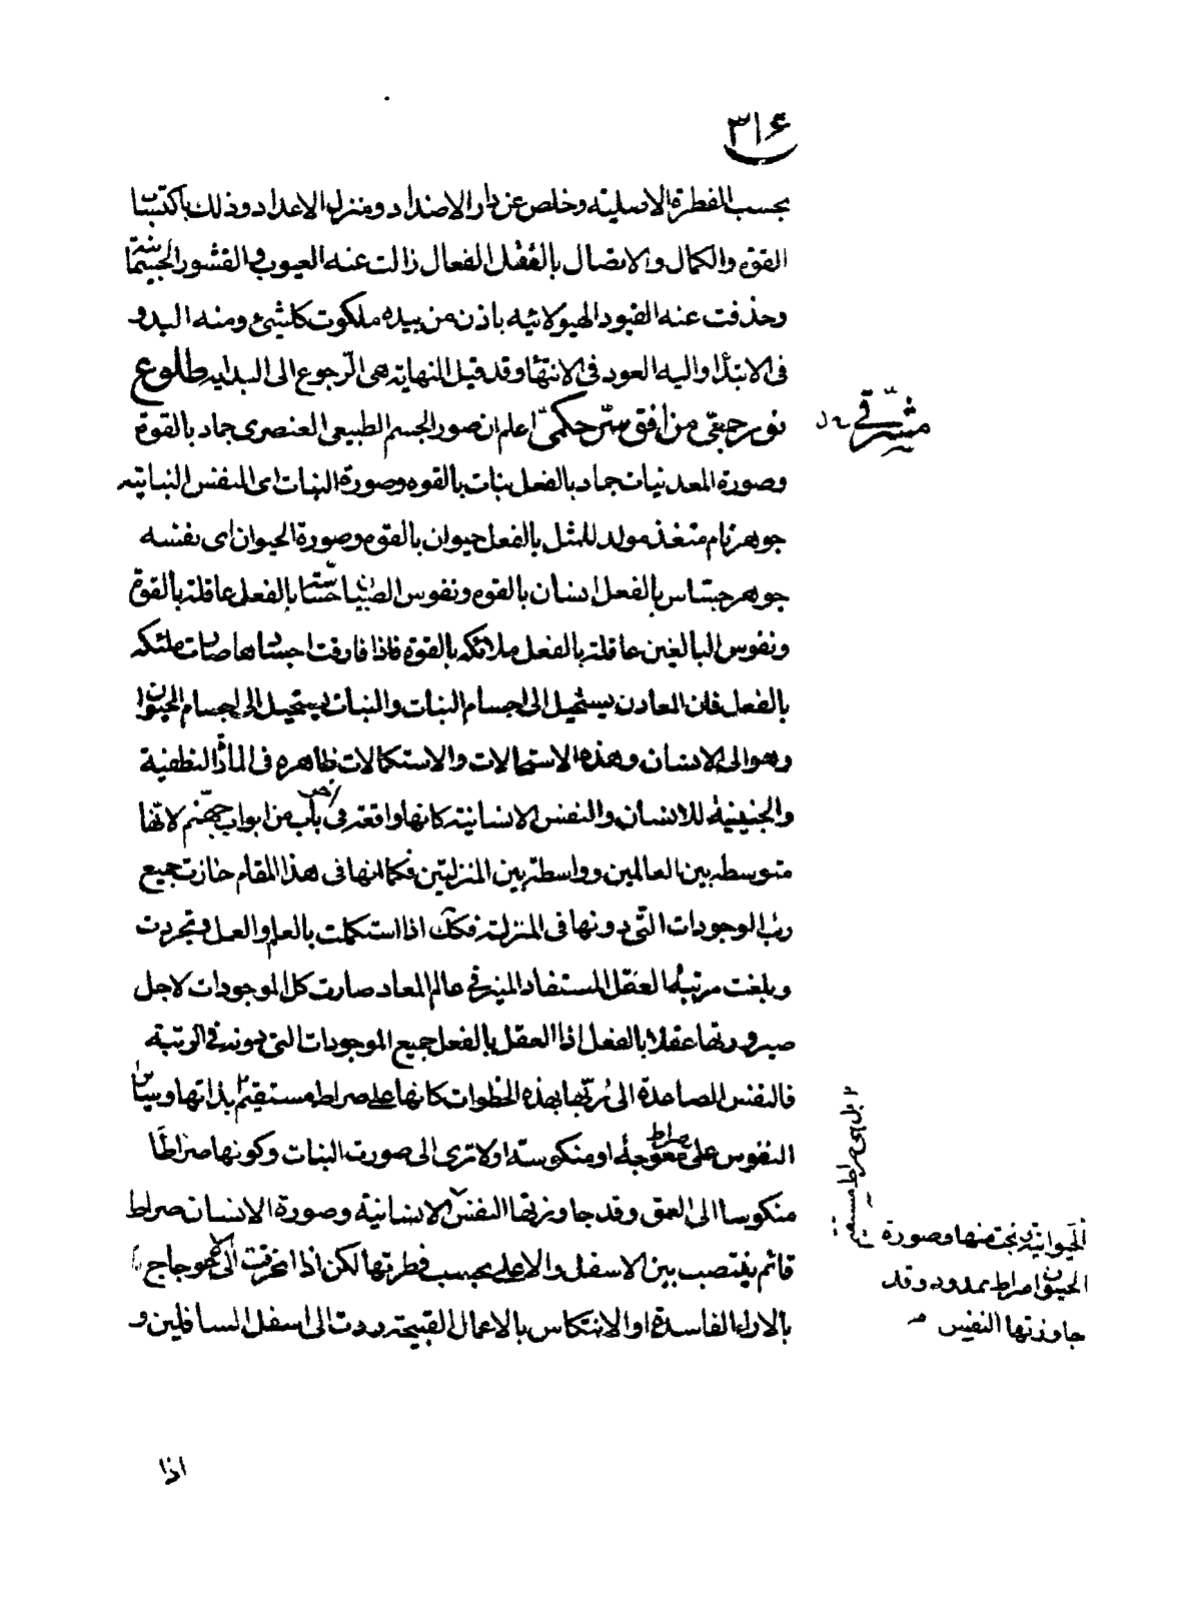 ٣١۶
بحسب الفطرة الاصلية وخلص عن دار الاضداد ومنزل الاعداد وذلك باكتساب
القوة والكمال والاتصال بالعقل الفعال زالت عنه العيوب والقشور الجسمانية
وحذفت عنه القيود الهيولانيه باذن من بيده ملكوت كلشئ ومنه البدو
فى الابتدا واليه العود فى الانتها وقد قيل النهاية هى الرجوع الى البدايه طلوع
نور من افق سر حكمى اعلم ان صور الجسم الطبيعى العنصرى جماد بالقوة
مشرقى
وصورة المعدنيات جماد بالفعل نبات بالقوه وصورة النبات اى النفس النباتيه
جوهر نام متغذ مولد للمثل بالفعل حيوان بالقوه وصورة الحيوان اى نفسه
جوهر حساس بالفعل انسان بالقوه ونفوس الصبيان حساسة بالفعل عاقلة بالقوة
ونفوس البالغين عاقلة بالفعل ملائكه بالقوة فاذا فارقت اجسادها صارت ملئكه
بالفعل فان المعادن يستحيل الى اجسام النبات والنبات يستحيل الى اجسام الحيوان
وهو الى الانسان وهذه الاستحالات والاستكمالات ظاهره فى المادة النطفية
والجنينية للانسان والنفس الانسانية كانها واقعة فى باب من ابواب جهنم لانها
متوسطه بين العالمين وواسطة بين المنزلتين فكما انها فى هذا المقام حازت جميع
رتب الوجودات التى دونها فى المنزلة فكك اذا استكملت بالعلم والعمل وتجردت
وبلغت مرتبة العقل المستفاد المنير فى عالم المعاد صارت كل الموجودات لاجل
صيرورتها عقلا بالفعل اذ العقل بالفعل جميع الموجودات التى دونه فى الرتبة
فالنفس الصاعدة الى ربها بهذه الخطوات كانها على صراط مستقيم بذاتها وسائر
بل هى صراط مستقيم
النفوس على صراط معوجة او منكوسة اولا ترى الى صورت النبات وكونها صراطا
منكوسا الى العمق وقد جاوزتها النفس الانسانية وصورة الانسان صراط
الحيوانية ونجت منها وصورة
الحيوان صراط ممدود وقد
جاوزتها النفس
قائم ينتصب بين الاسفل والاعلى بحسب فطرتها لكن اذا انحرفت الى الاعوجاج
بالاراء الفاسدة او الانتكاس بالاعمال القبيحة ردت الى اسفل السافلين و
اذا